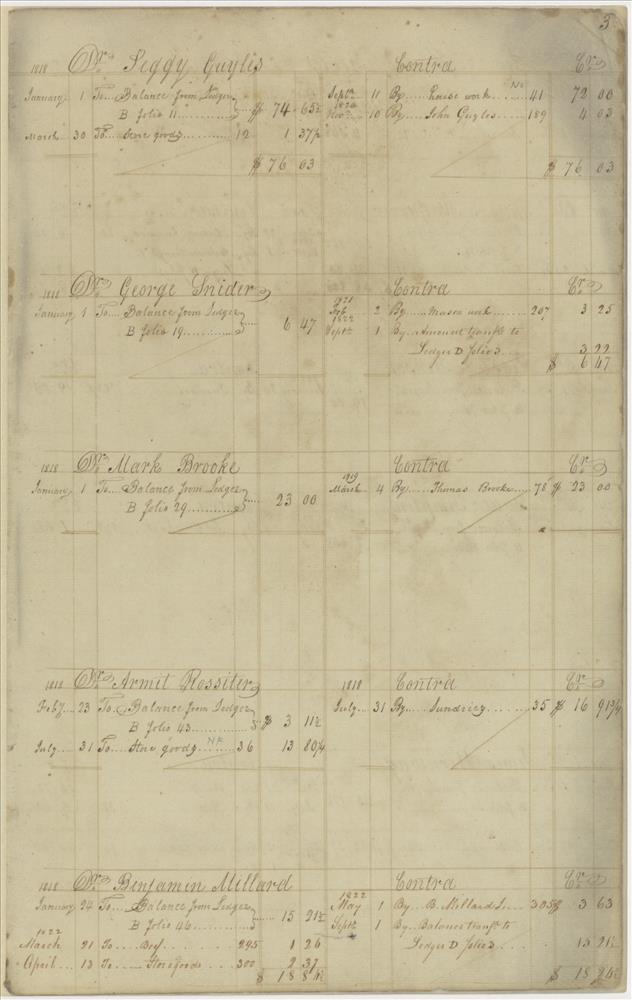 3
1818 Dr. Peggy Guyles Contra Cr.
January 1 To Balance from Ledger
B folio 11 $ 74 65½
March 30 To Store goods 12 1 37½
$ 76 03
Septr. 11 By house work No 41 72 00
1820
Novr. 10 By John Guyles 189 4 03
$ 76 03
1818 Dr. George Snider Contra Cr.
January 1 To Balance from Ledger
B folio 19 6 47
1821
Feb 2 By Mason work 207 3 25
1822
Septr. 1 By Amount transfd. to
Ledger D folio 3 3 22
$ 6 47
1818 Dr. Mark Brooke Contra Cr.
January 1 To Balance from Ledger
B folio 29 23 00
1819
March 4 By Thomas Brooke 78 $ 23 00
1818 Dr. Armit Rossiter 1818 Contra Cr.
Feby. 23 To Balance from Ledger
B folio 43 $ 3 11½
July 31 To Store goods NF 36 13 80¼
July 31 By Sundries 35 $ 16 91¾
1818 Dr. Benjamin Millard Contra Cr.
January 24 To Balance from Ledger
B folio 46 15 21½
1822
March 21 To Beef 295 1 26
April 13 To Store goods 300 2 37
$ 18 84½
1822
May 1 By B. Millard 305 $ 3 63
Septr. 1 By Balance transfr. to
Ledger D folio 3 15 21½
$ 18 84½